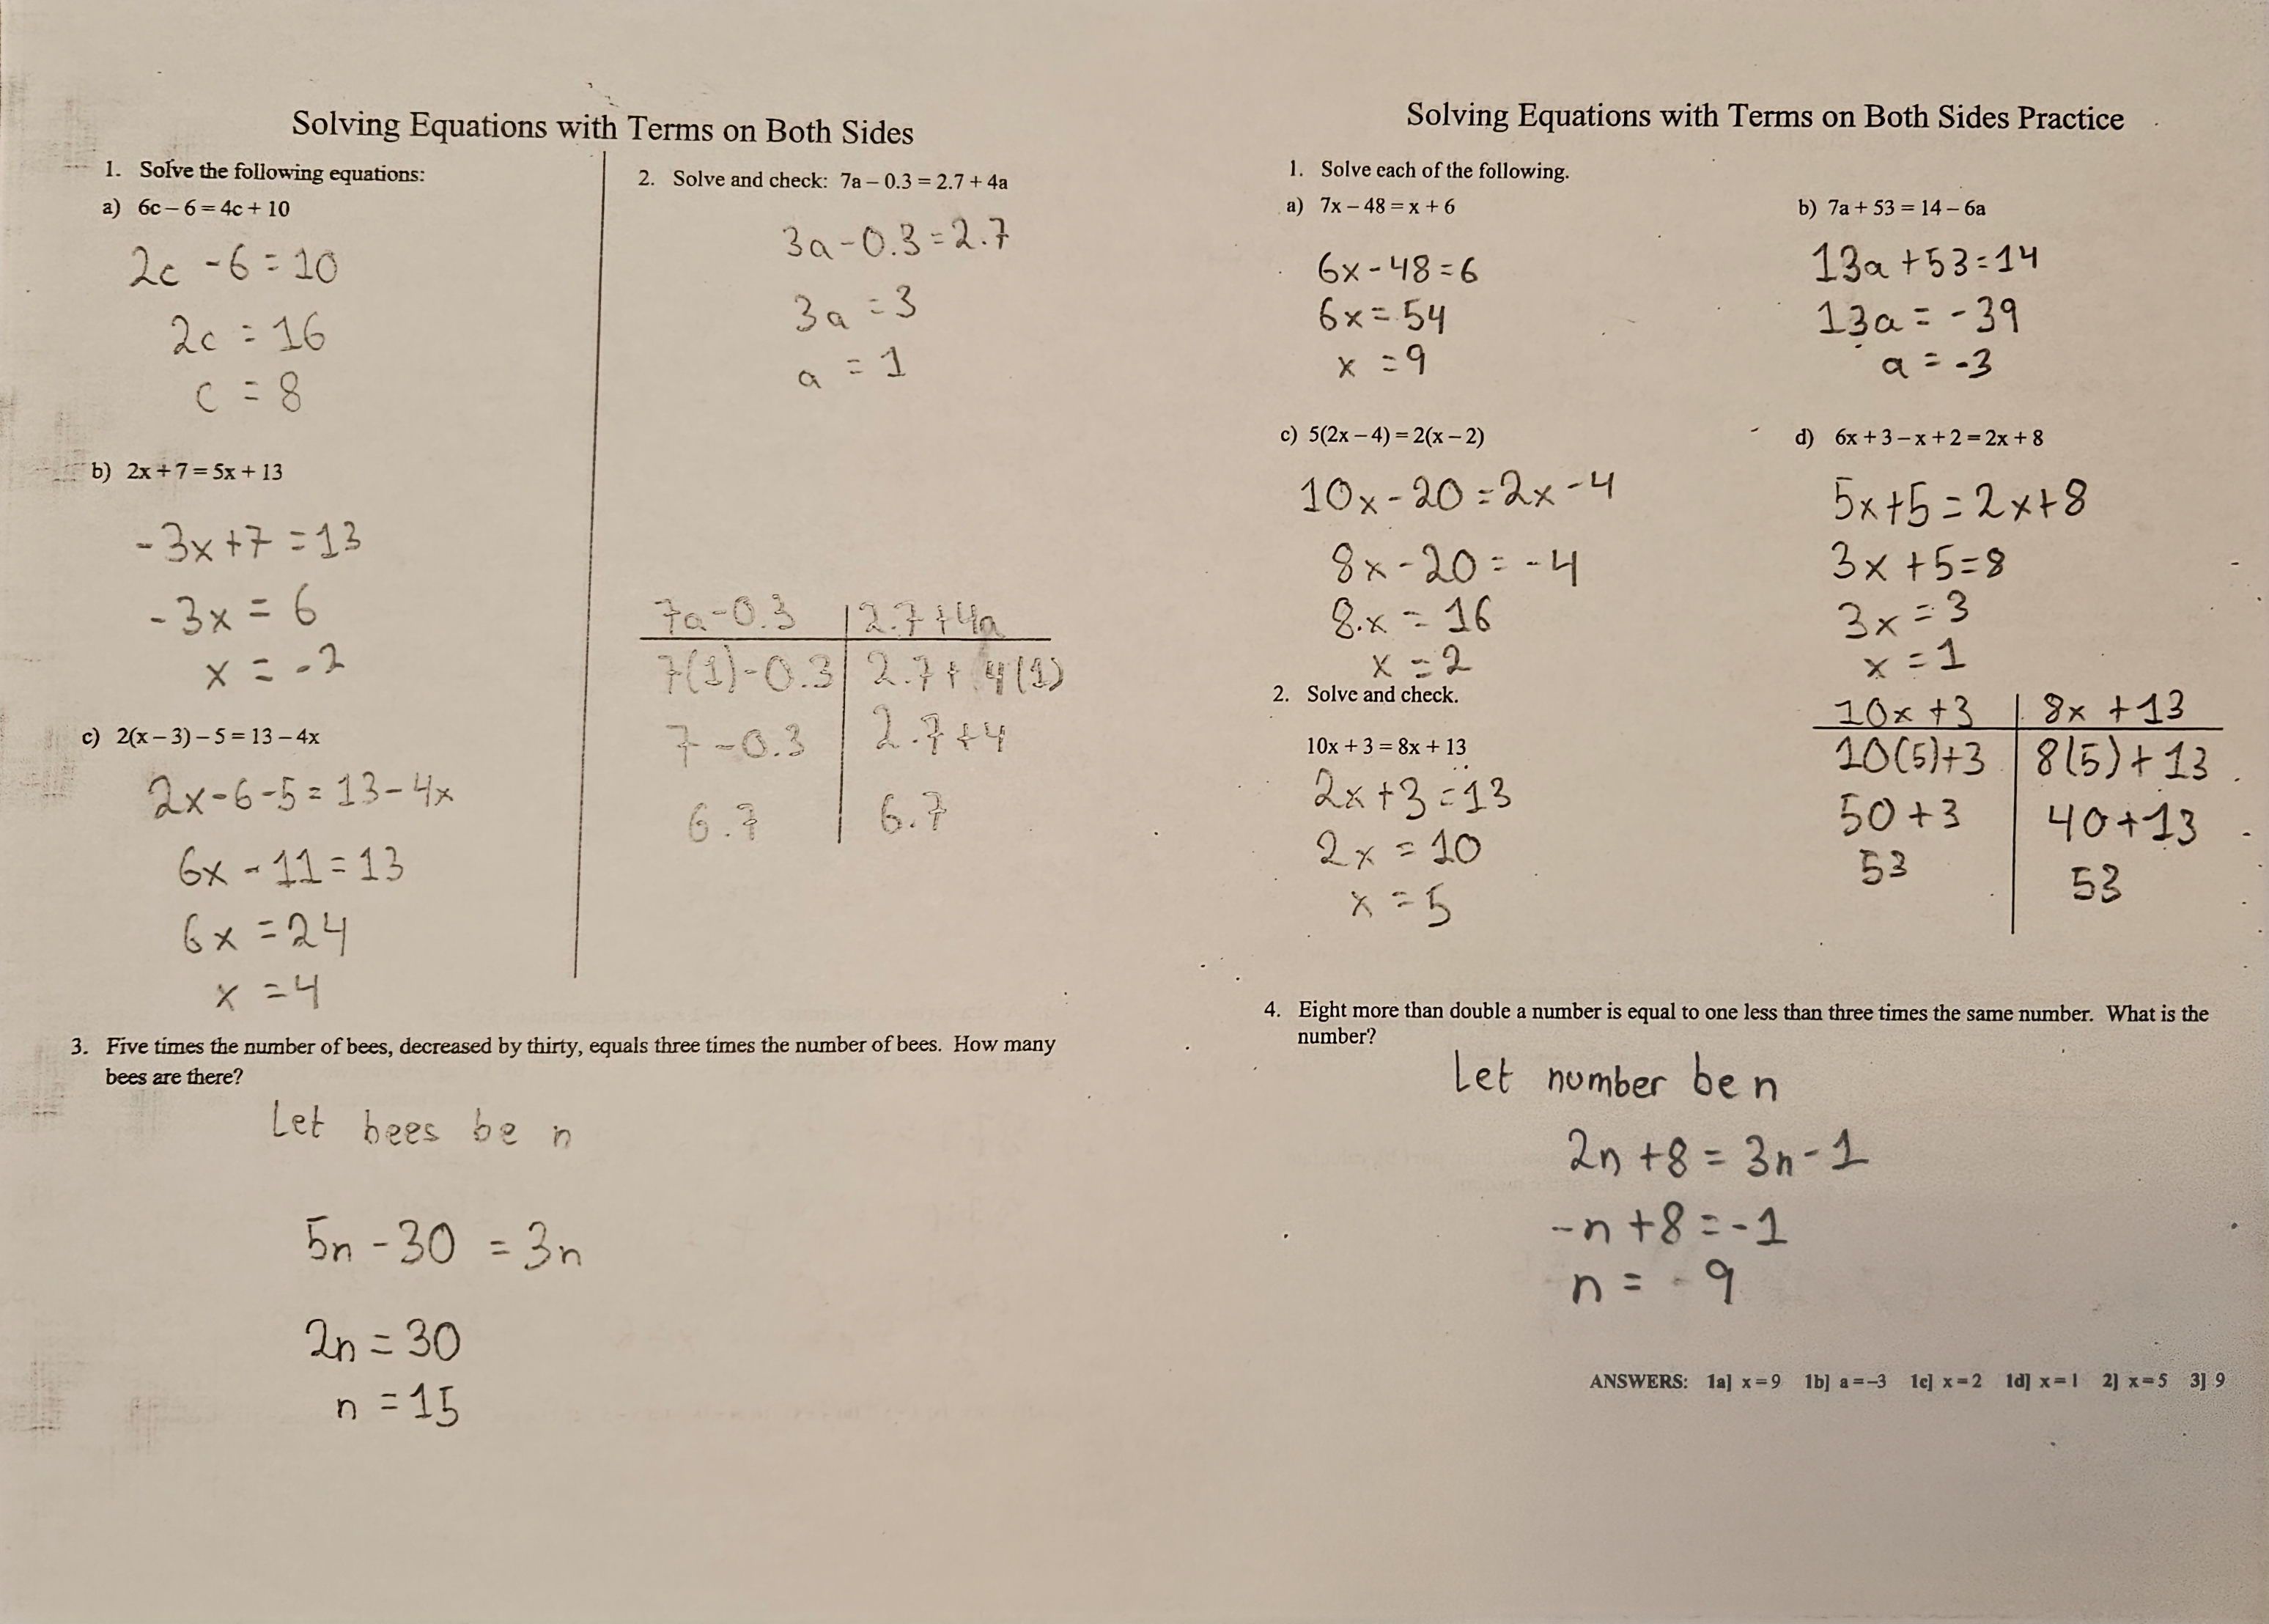 Solving Equations with Terms on Both Sides
1. Solve the following equations:
a) 6c – 6 = 4c + 10
2c - 6 = 10
2c = 16
c = 8
b) 2x + 7 = 5x + 13
-3x + 7 = 13
-3x = 6
x = -2
c) 2(x – 3) – 5 = 13 – 4x
2x - 6 - 5 = 13 - 4x
6x - 11 = 13
6x = 24
x = 4
2. Solve and check: 7a – 0.3 = 2.7 + 4a
3a - 0.3 = 2.7
3a = 3
a = 1
7a - 0.3 | 2.7 + 4a
7(1) - 0.3 | 2.7 + 4(1)
7 - 0.3 | 2.7 + 4
6.7 | 6.7
3. Five times the number of bees, decreased by thirty, equals three times the number of bees. How many
bees are there?
Let bees be n
5n - 30 = 3n
2n = 30
n = 15
Solving Equations with Terms on Both Sides Practice
1. Solve each of the following.
a) 7x – 48 = x + 6
6x - 48 = 6
6x = 54
x = 9
b) 7a + 53 = 14 – 6a
13a + 53 = 14
13a = -39
a = -3
c) 5(2x – 4) = 2(x – 2)
10x - 20 = 2x - 4
8x - 20 = -4
8x = 16
x = 2
d) 6x + 3 – x + 2 = 2x + 8
5x + 5 = 2x + 8
3x + 5 = 8
3x = 3
x = 1
2. Solve and check.
10x + 3 = 8x + 13
2x + 3 = 13
2x = 10
x = 5
10x + 3 | 8x + 13
10(5) + 3 | 8(5) + 13
50 + 3 | 40 + 13
53 | 53
4. Eight more than double a number is equal to one less than three times the same number. What is the
number?
Let number be n
2n + 8 = 3n - 1
-n + 8 = -1
n = 9
ANSWERS: 1a] x = 9 1b] a = –3 1c] x = 2 1d] x = 1 2] x = 5 3] 9